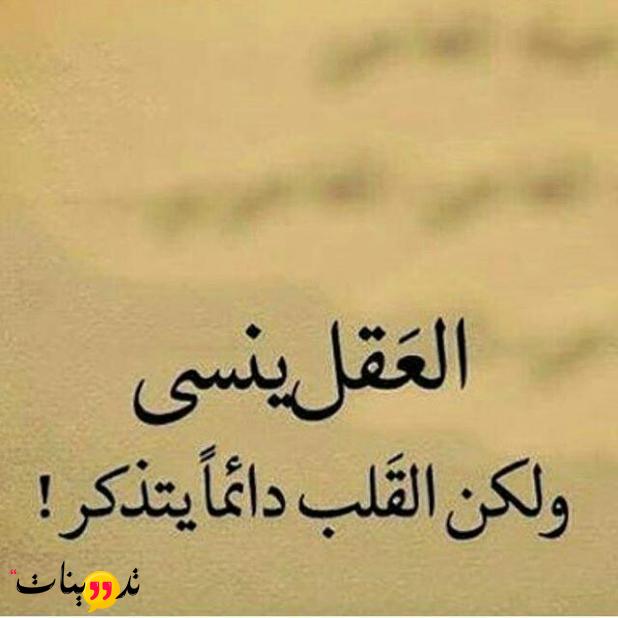 العَقل ينسى
ولكن القَلب دائماً يتذكر !
تدوينات